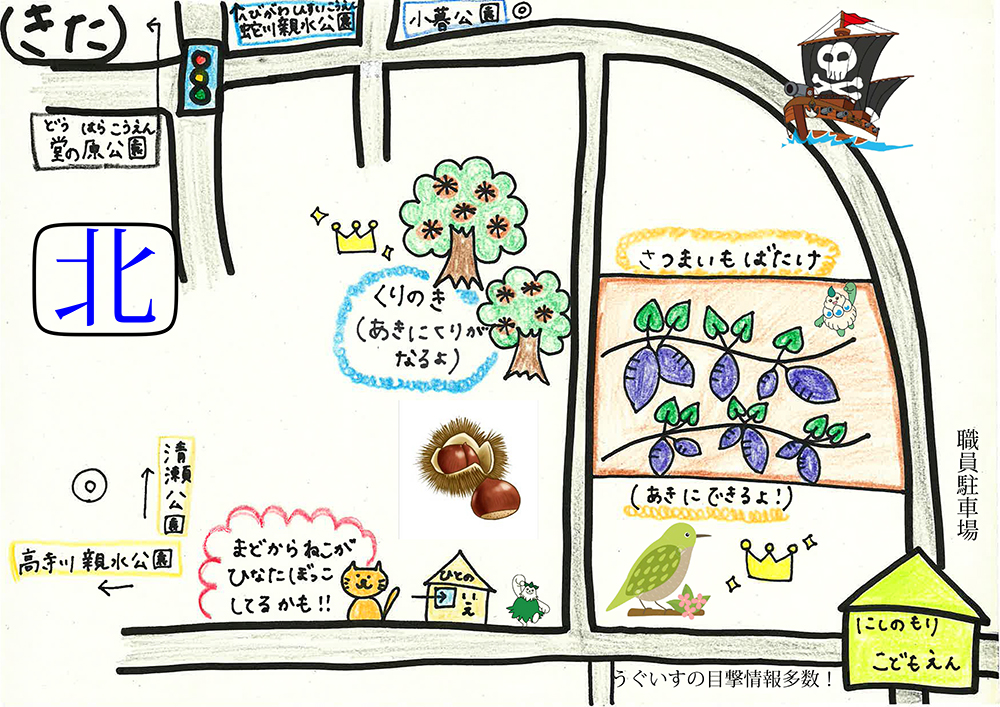 (きた)
へびがわしんすいこうえん
蛇川親水公園
小暮公園
どう はらこうえん
堂の原公園
北
さつまいもばたけ
くりのき
(あきにくりが
なるよ)
清瀬公園
高寺川親水公園
まどからねこが
ひなたぼっこ
してるかも!!
ひとの
いえ
(あきにできるよ!)
職員駐車場
にしのもり
こどもえん
うぐいすの目撃情報多数!